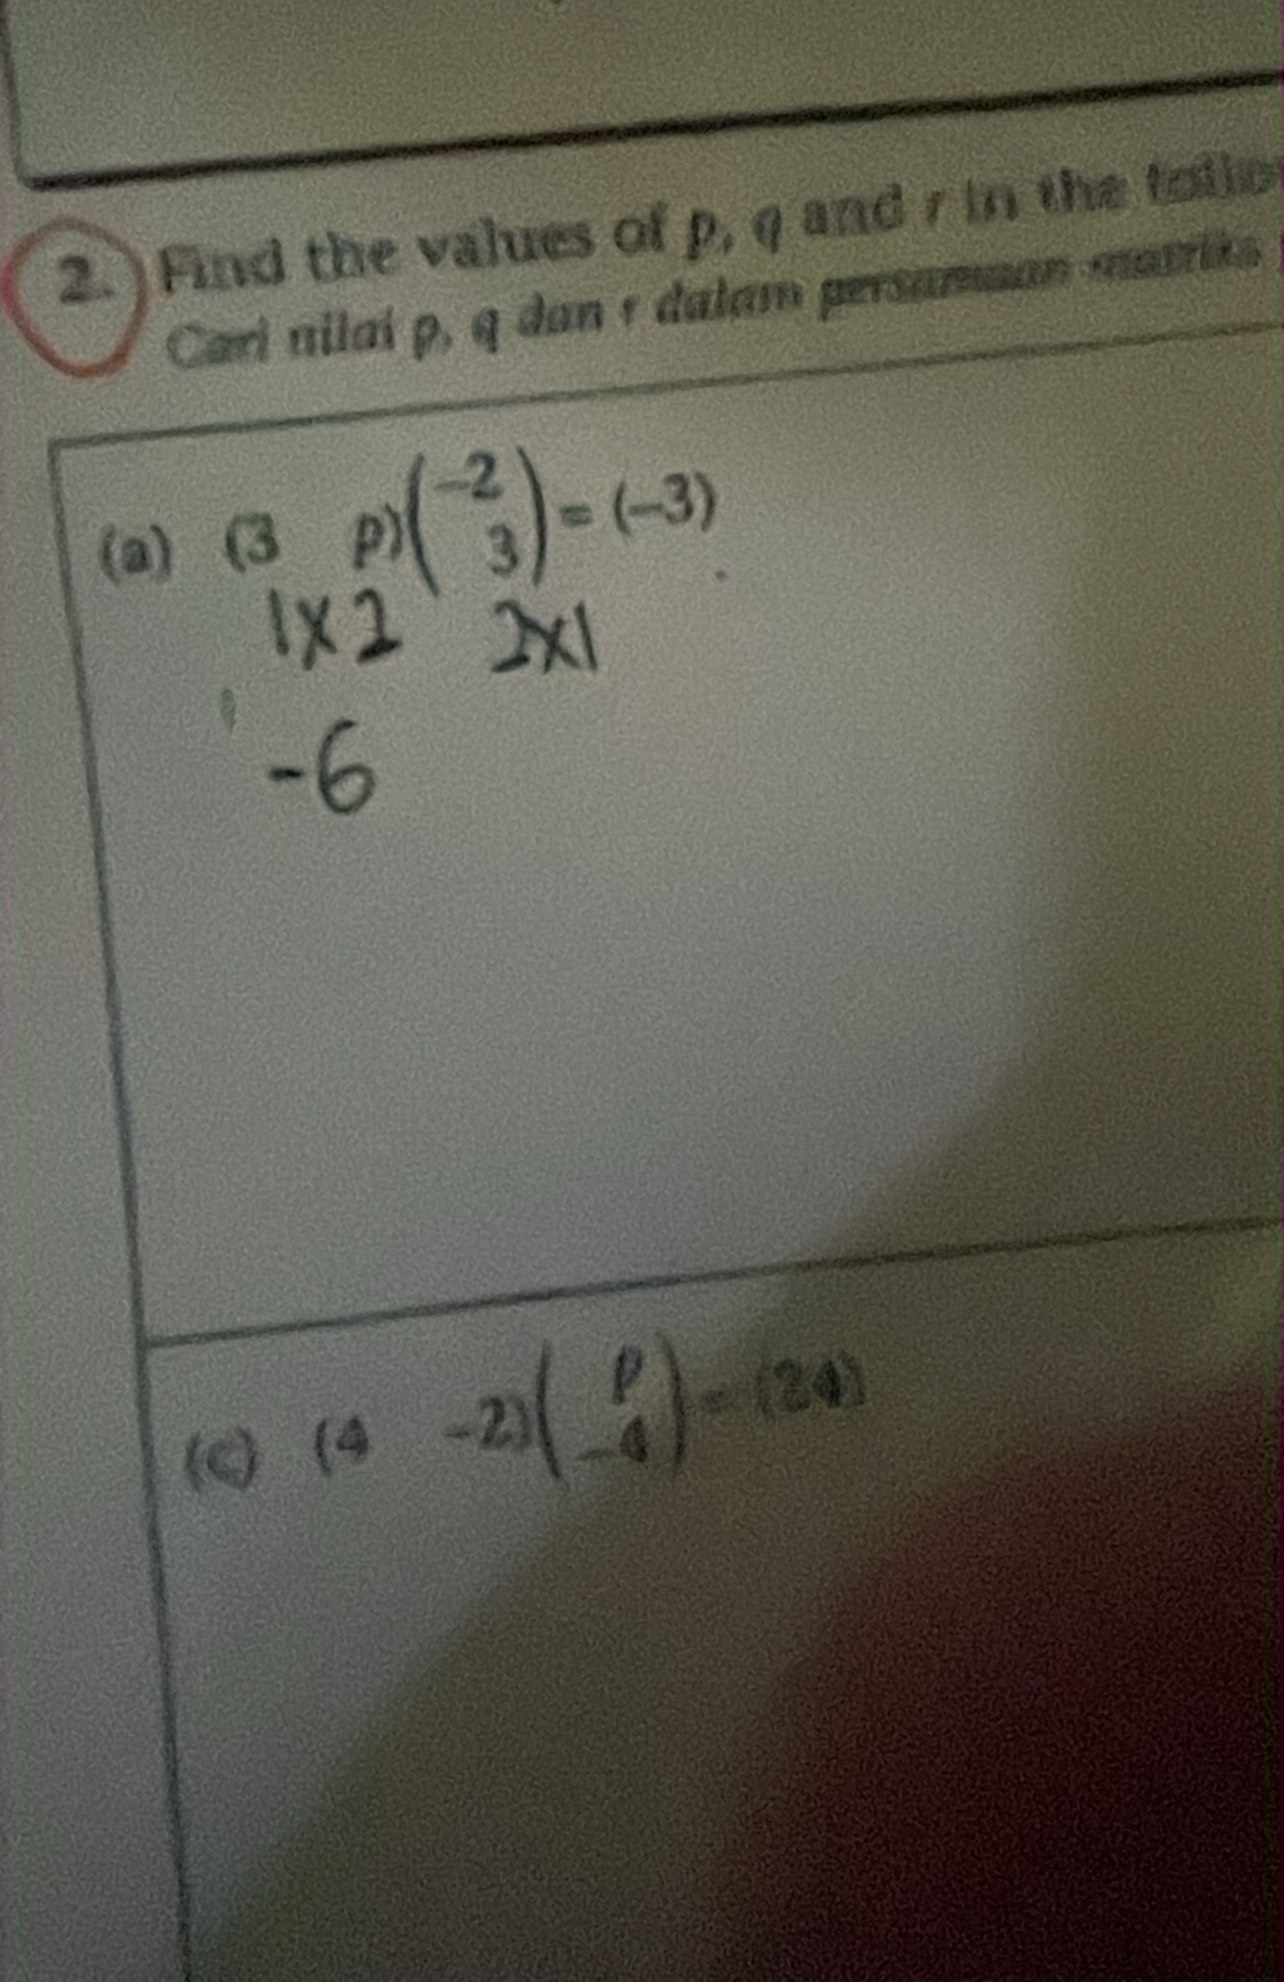 2. Find the values of p, q and r in the
Cari nilai p, q dan r dalam persamaan matriks
(a) (3 p)(-2 3) = (-3)
1x2 2x1
-6
(c) (4 -2)(p -4) = (24)